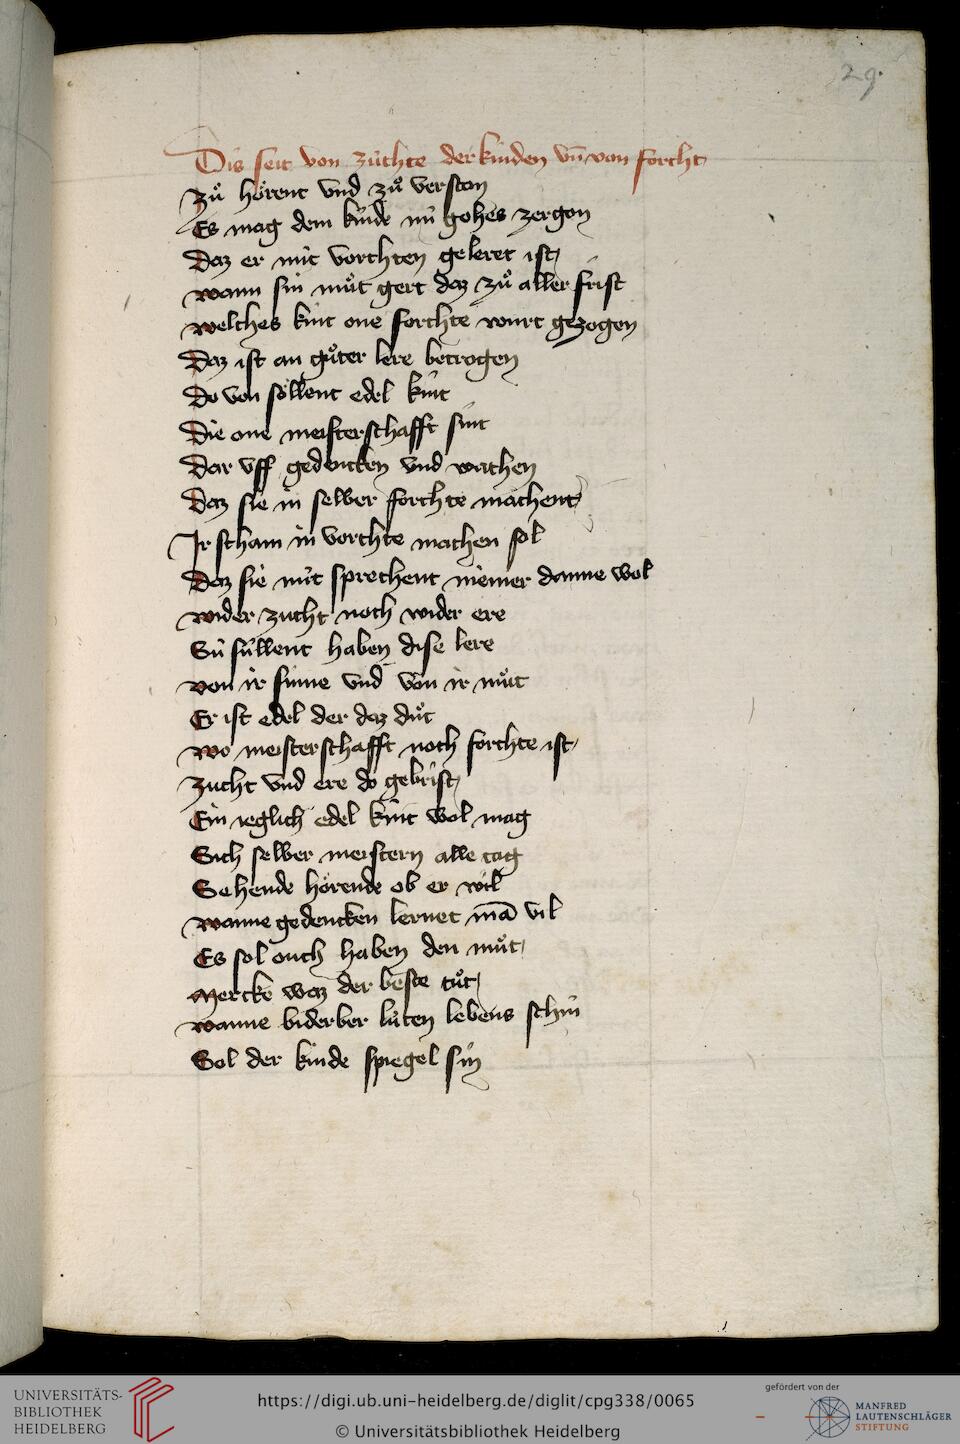 29.
Dis seit von zúchte der kinden vn̄ von forcht
Zuͦ hoͤrent vnd zuͦ verston
Es mag dem kinde nú gohes zergon
Daz er mit vorchten geleret ist
wann sin muͦt gert daz zuͦ aller frist
welches kint one forchte wurt gezogen
Daz ist an guͦter lere betrogen
Do von soͤllent edel kint
Die one meisterschafft sint
Dar vff gedencken vnd wachen
Daz sie in selber forchte machent
Ir scham in vorchte machen sol
Daz sie nút sprechent niemer danne wol
wider zucht noch wider ere
Sú súllent haben dise lere
von ir sinne vnd von ir muͦt
Er ist edel der daz duͦt
wo meisterschafft noch forchte ist
Zucht vnd ere do gebrist
Ein ieglich edel kint wol mag
Sich selber meistern alle tag
Sehende hoͤrende ob er wil
wanne gedencken lernet mā vil
Es sol ouch haben den muͦt
Mercke waz der beste tuͦt
wanne biderber lúten lebens schin
Sol der kinde spiegel sin
UNIVERSITÄTS-
BIBLIOTHEK
HEIDELBERG
https://digi.ub.uni-heidelberg.de/diglit/cpg338/0065
© Universitätsbibliothek Heidelberg
gefördert von der
MANFRED
LAUTENSCHLÄGER
STIFTUNG